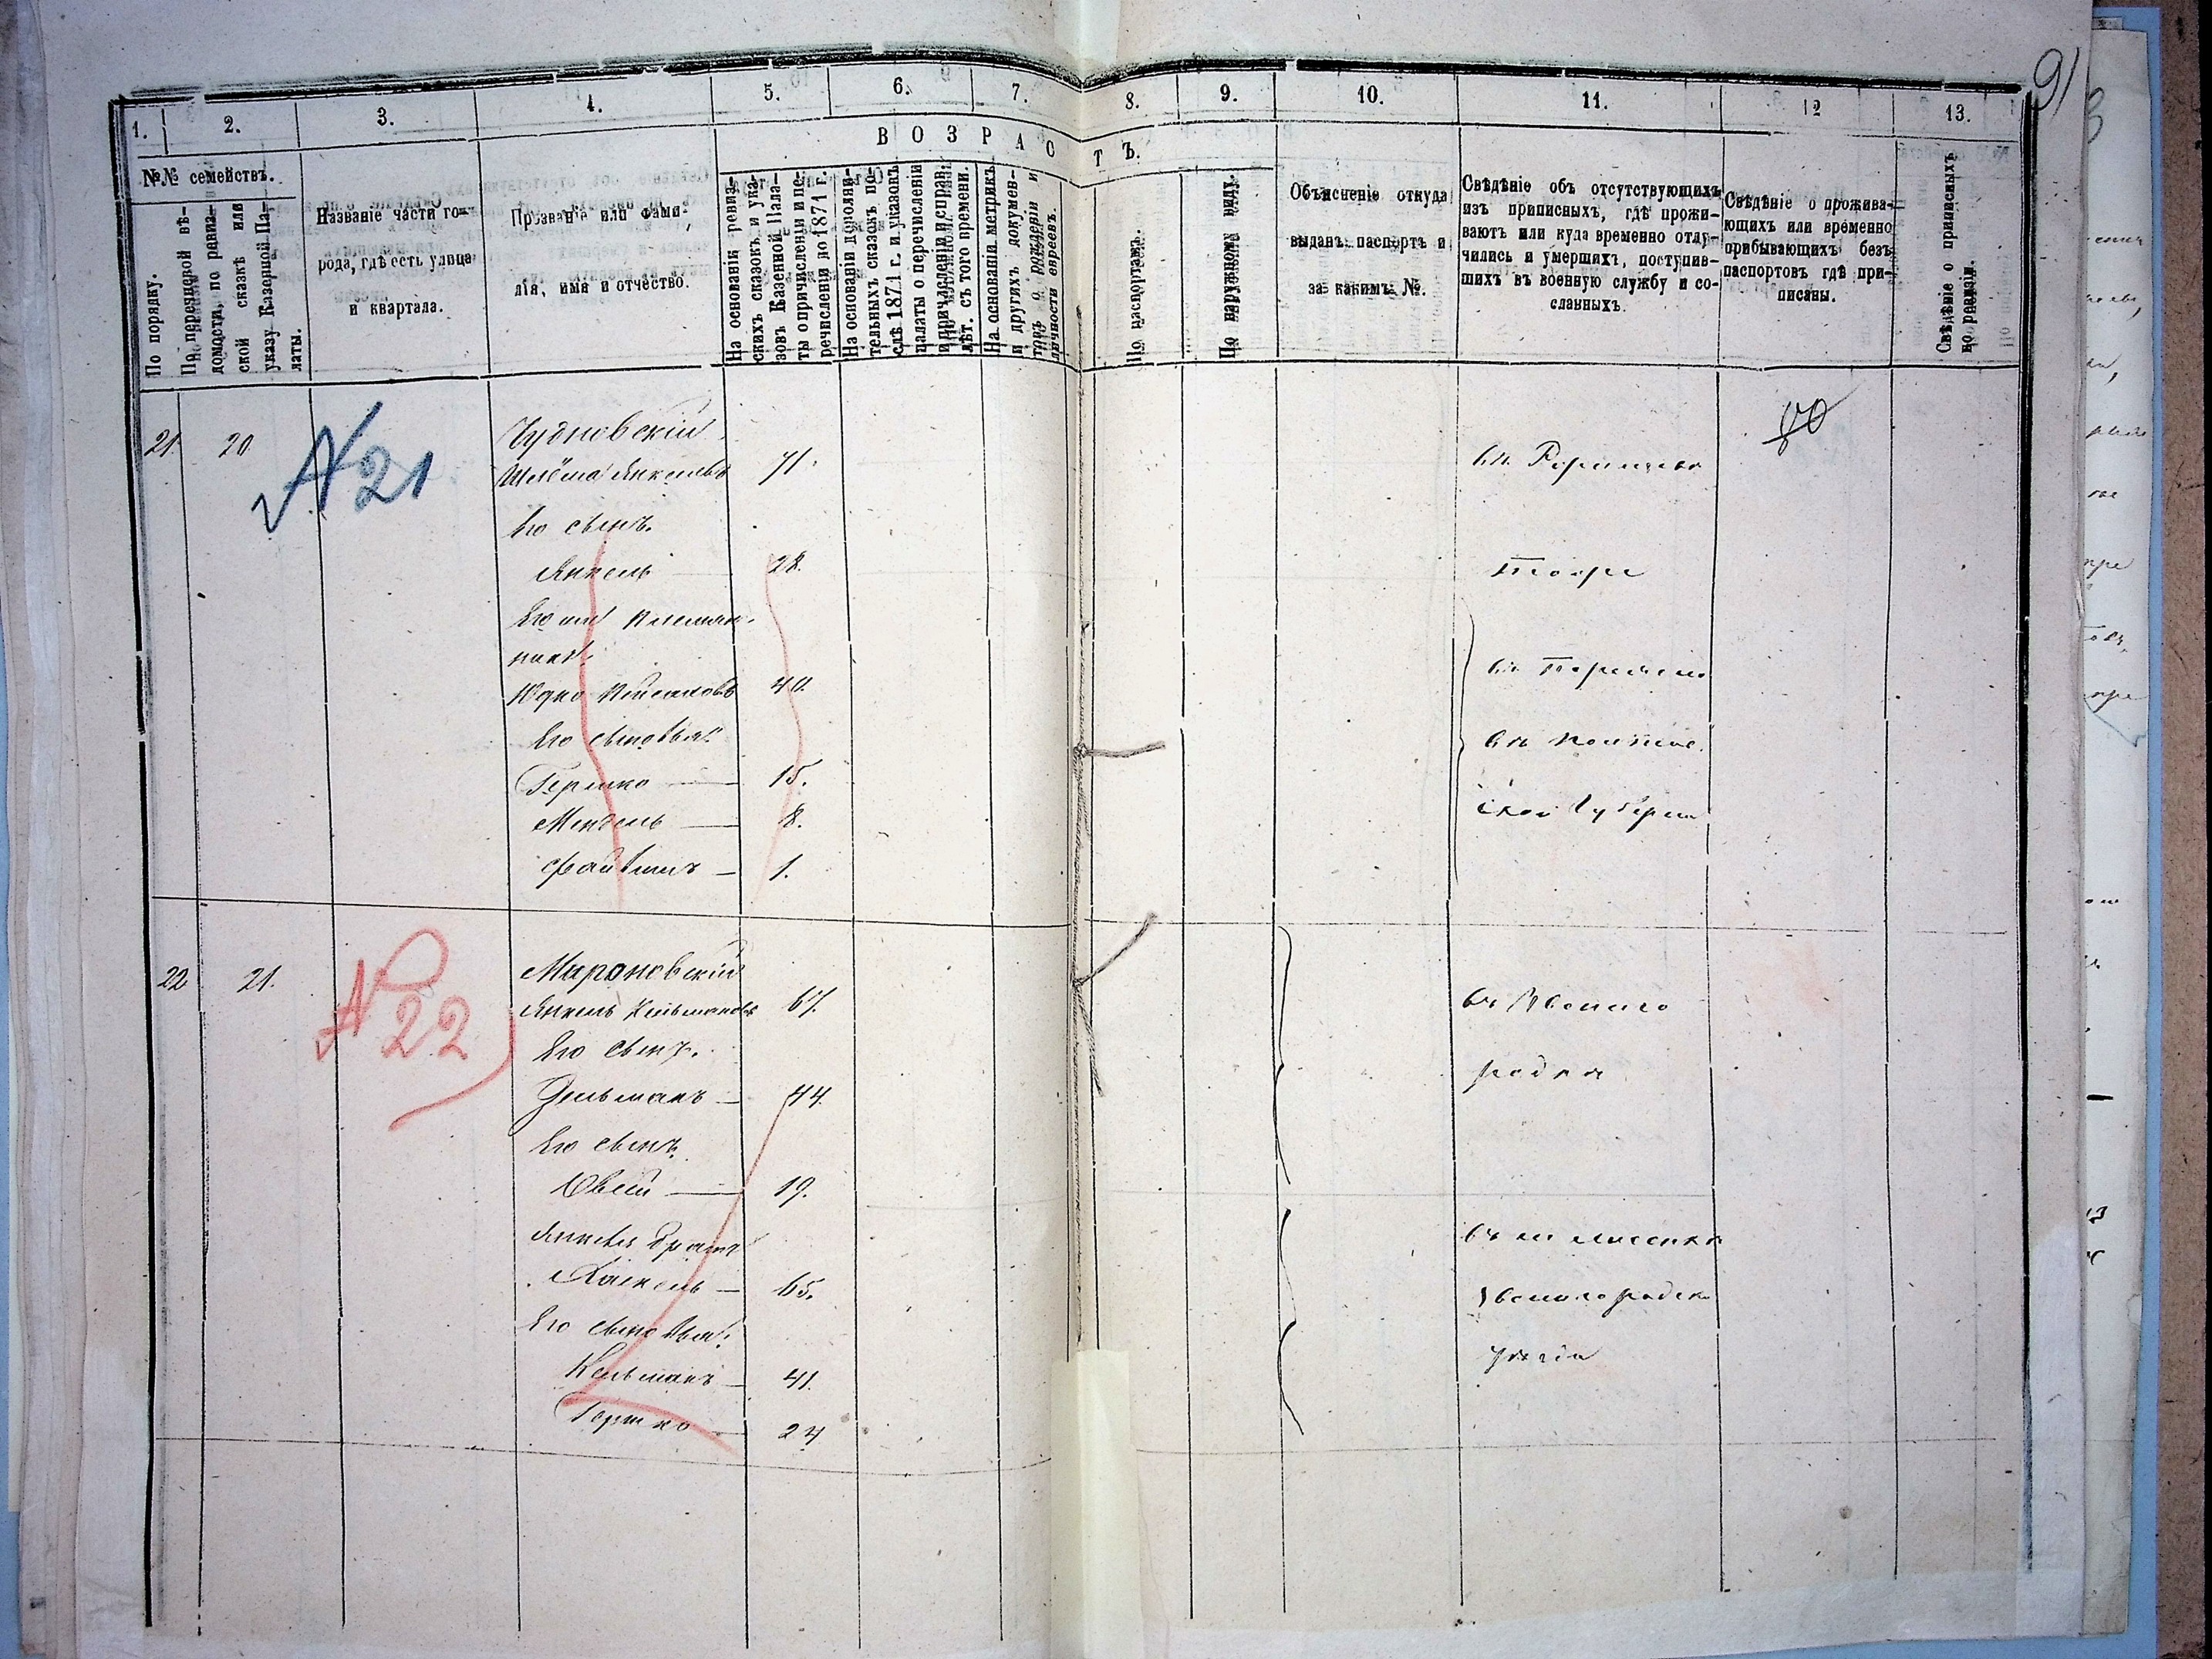 91
1. 2. 3. 4. 5. 6. 7. 8. 9. 10. 11. 12 13.
ВОЗРАСТЪ.
№№ семействъ.
По порядку.
По перечневой вѣ-
домости, по ревиз-
ской сказкѣ или
указу Казенной Па-
латы.
Названіе части го-
рода, гдѣ есть улица
и квартала.
Прозваніе или фами-
лія, имя и отчество.
На основаніи ревиз-
скихъ сказокъ и ука-
зовъ Казенной Пала-
ты о причисленіи и пе-
речисленіи до 1871 г.
На основаніи дополни-
тельныхъ сказокъ по-
слѣ 1871 г. и указовъ
палаты о перечисленіи
и причисленіи и справ.
лѣт. съ того времени.
На основаніи метрикъ
и другихъ докумен-
товъ о рожденіи и
личности евреевъ.
По паспортамъ.
По наружному виду.
Объясненіе откуда
выданъ паспортъ и
за какимъ №.
Свѣдѣніе объ отсутствующихъ
изъ приписныхъ, гдѣ прожи-
ваютъ или куда временно отлу-
чились и умершихъ, поступив-
шихъ въ военную службу и со-
сланныхъ.
Свѣдѣніе о прожива-
ющихъ или временно
прибывающихъ безъ
паспортовъ гдѣ при-
писаны.
Свѣдѣніе о приписныхъ
по ревизіи.
21. 20. №21
Чудновскій
Шлёма Янкелевъ 71.
Его сынъ.
Янкель — 28.
Племян-
ники
Юдко 40.
Его сыновья:
Гершко — 15.
Мендель — 8.
Файвишъ — 1.
въ
Тоже
въ
въ
ской Губерніи
22 21. №22
Мироновскій
Янкель Кельмановъ 67.
Его сынъ.
Зельманъ — 44.
Его сынъ
Овсей — 19.
Янкеля братъ
Хаскель — 65.
Его сыновья:
Кельманъ — 41.
Гершко — 24
въ Звениго
родкѣ
въ м Лисянкѣ
Звенигородск
уѣзда